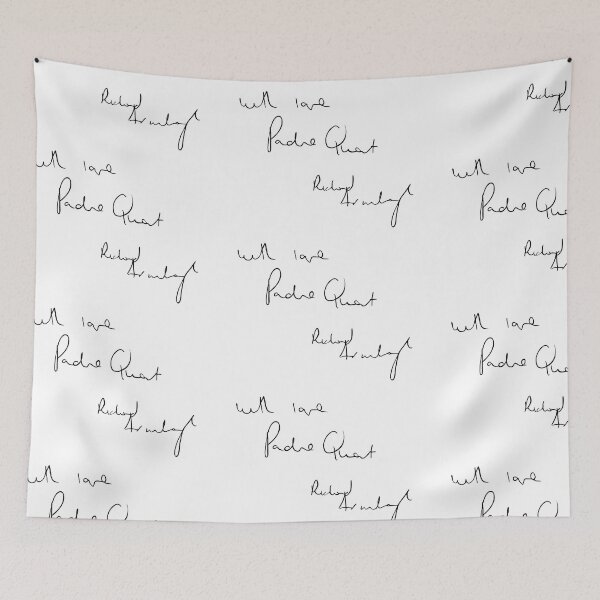 Richard
Armitage
with love
Padre Quart
Richard
with love
Padre Quart
Richard
Armitage
with love
Padre Qua
Richard
Armitage
with love
Padre Quart
Richard
with love
Padre Quart
Richard
Armitage
with love
Padre Qua
Richard
Armitage
with love
Padre Quart
Richard
with love
Richard
Armitage
with love